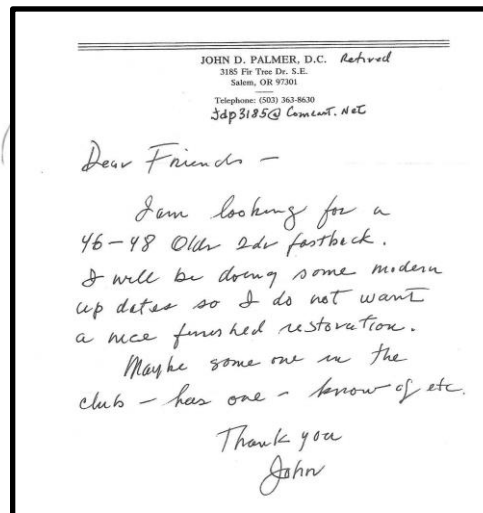 JOHN D. PALMER, D.C. Retired
3185 Fir Tree Dr. S.E.
Salem, OR 97301
Telephone: (503) 363-8630
Jdp3185@Comcast.Net
Dear Friends -
I am looking for a
46-48 Olds 2dr fastback.
I will be doing some modern
up dates so I do not want
a nice finished restoration.
Maybe some one in the
club - has one - know of etc.
Thank you
John